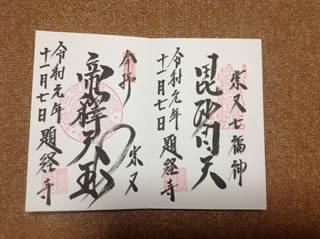 柴又七福神
毘沙門天
令和元年
十一月七日 題経寺
奉拝 柴又
帝釋天王
令和元年
十一月七日 題経寺